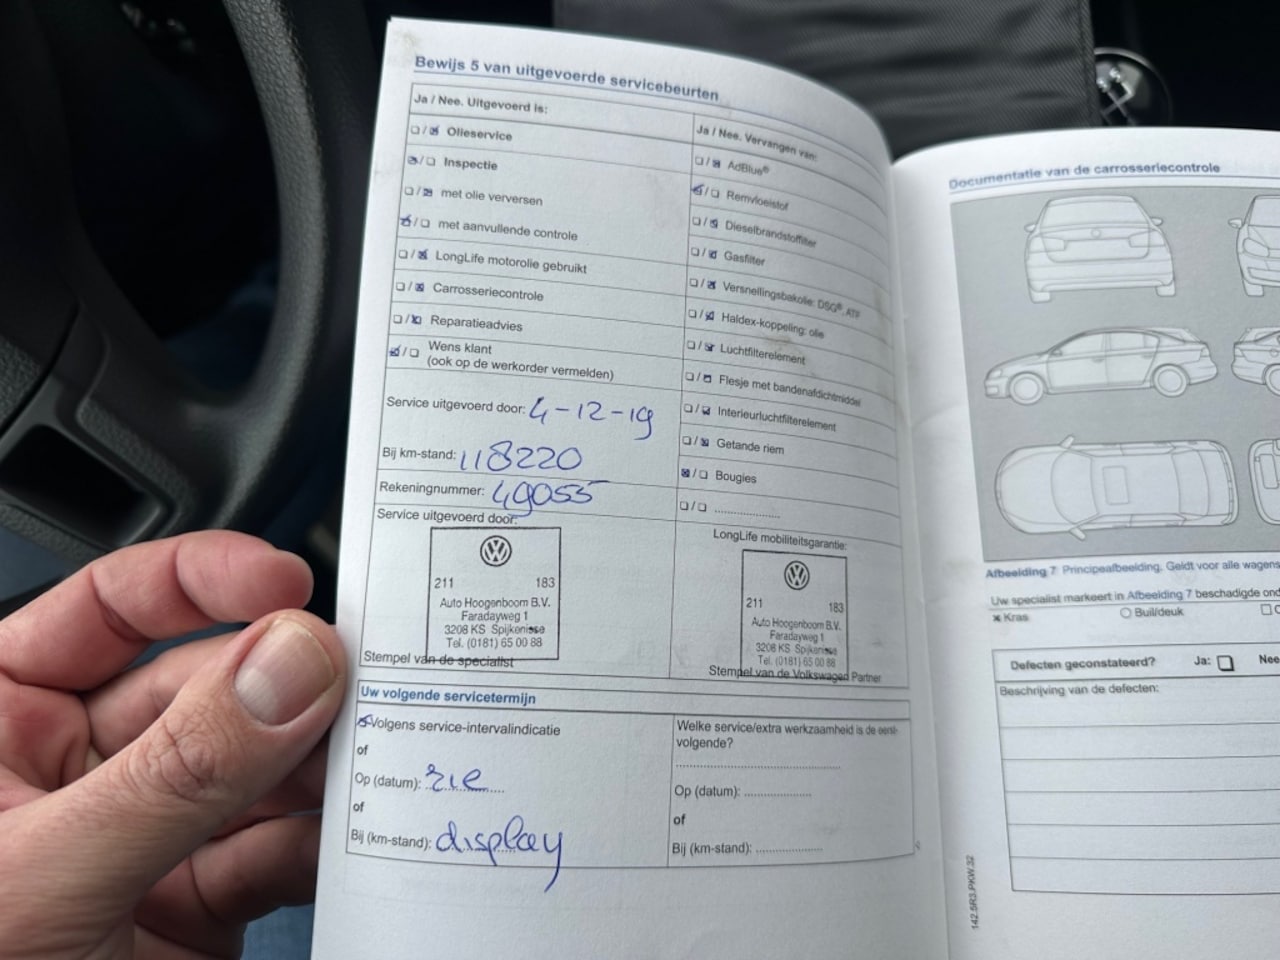 Bewijs 5 van uitgevoerde servicebeurten
Ja / Nee. Uitgevoerd is:
Olieservice
Inspectie
met olie verversen
met aanvullende controle
LongLife motorolie gebruikt
Carrosseriecontrole
Reparatieadvies
Wens klant
(ook op de werkorder vermelden)
Service uitgevoerd door: 4-12-19
Bij km-stand: 118220
Rekeningnummer: 49055
Service uitgevoerd door:
211 183
Auto Hoogenboom B.V.
Faradayweg 1
3208 KS Spijkenisse
Tel. (0181) 65 00 88
Stempel van de specialist
Ja / Nee. Vervangen van:
AdBlue®
Remvloeistof
Dieselbrandstoffilter
Gasfilter
Versnellingsbakolie: DSG®, ATF
Haldex-koppeling: olie
Luchtfilterelement
Flesje met bandenafdichtmiddel
Interieurluchtfilterelement
Getande riem
Bougies
LongLife mobiliteitsgarantie:
211 183
Auto Hoogenboom B.V.
Faradayweg 1
3208 KS Spijkenisse
Tel. (0181) 65 00 88
Stempel van de Volkswagen Partner
Uw volgende servicetermijn
Volgens service-intervalindicatie
of
Op (datum): zie
of
Bij (km-stand): display
Welke service/extra werkzaamheid is de eerst-
volgende?
Op (datum):
of
Bij (km-stand):
Documentatie van de carrosseriecontrole
Afbeelding 7 Principeafbeelding. Geldt voor alle wagens
Uw specialist markeert in Afbeelding 7 beschadigde
Kras Buil/deuk
Defecten geconstateerd? Ja: Nee
Beschrijving van de defecten:
142.5R3.PKW.32